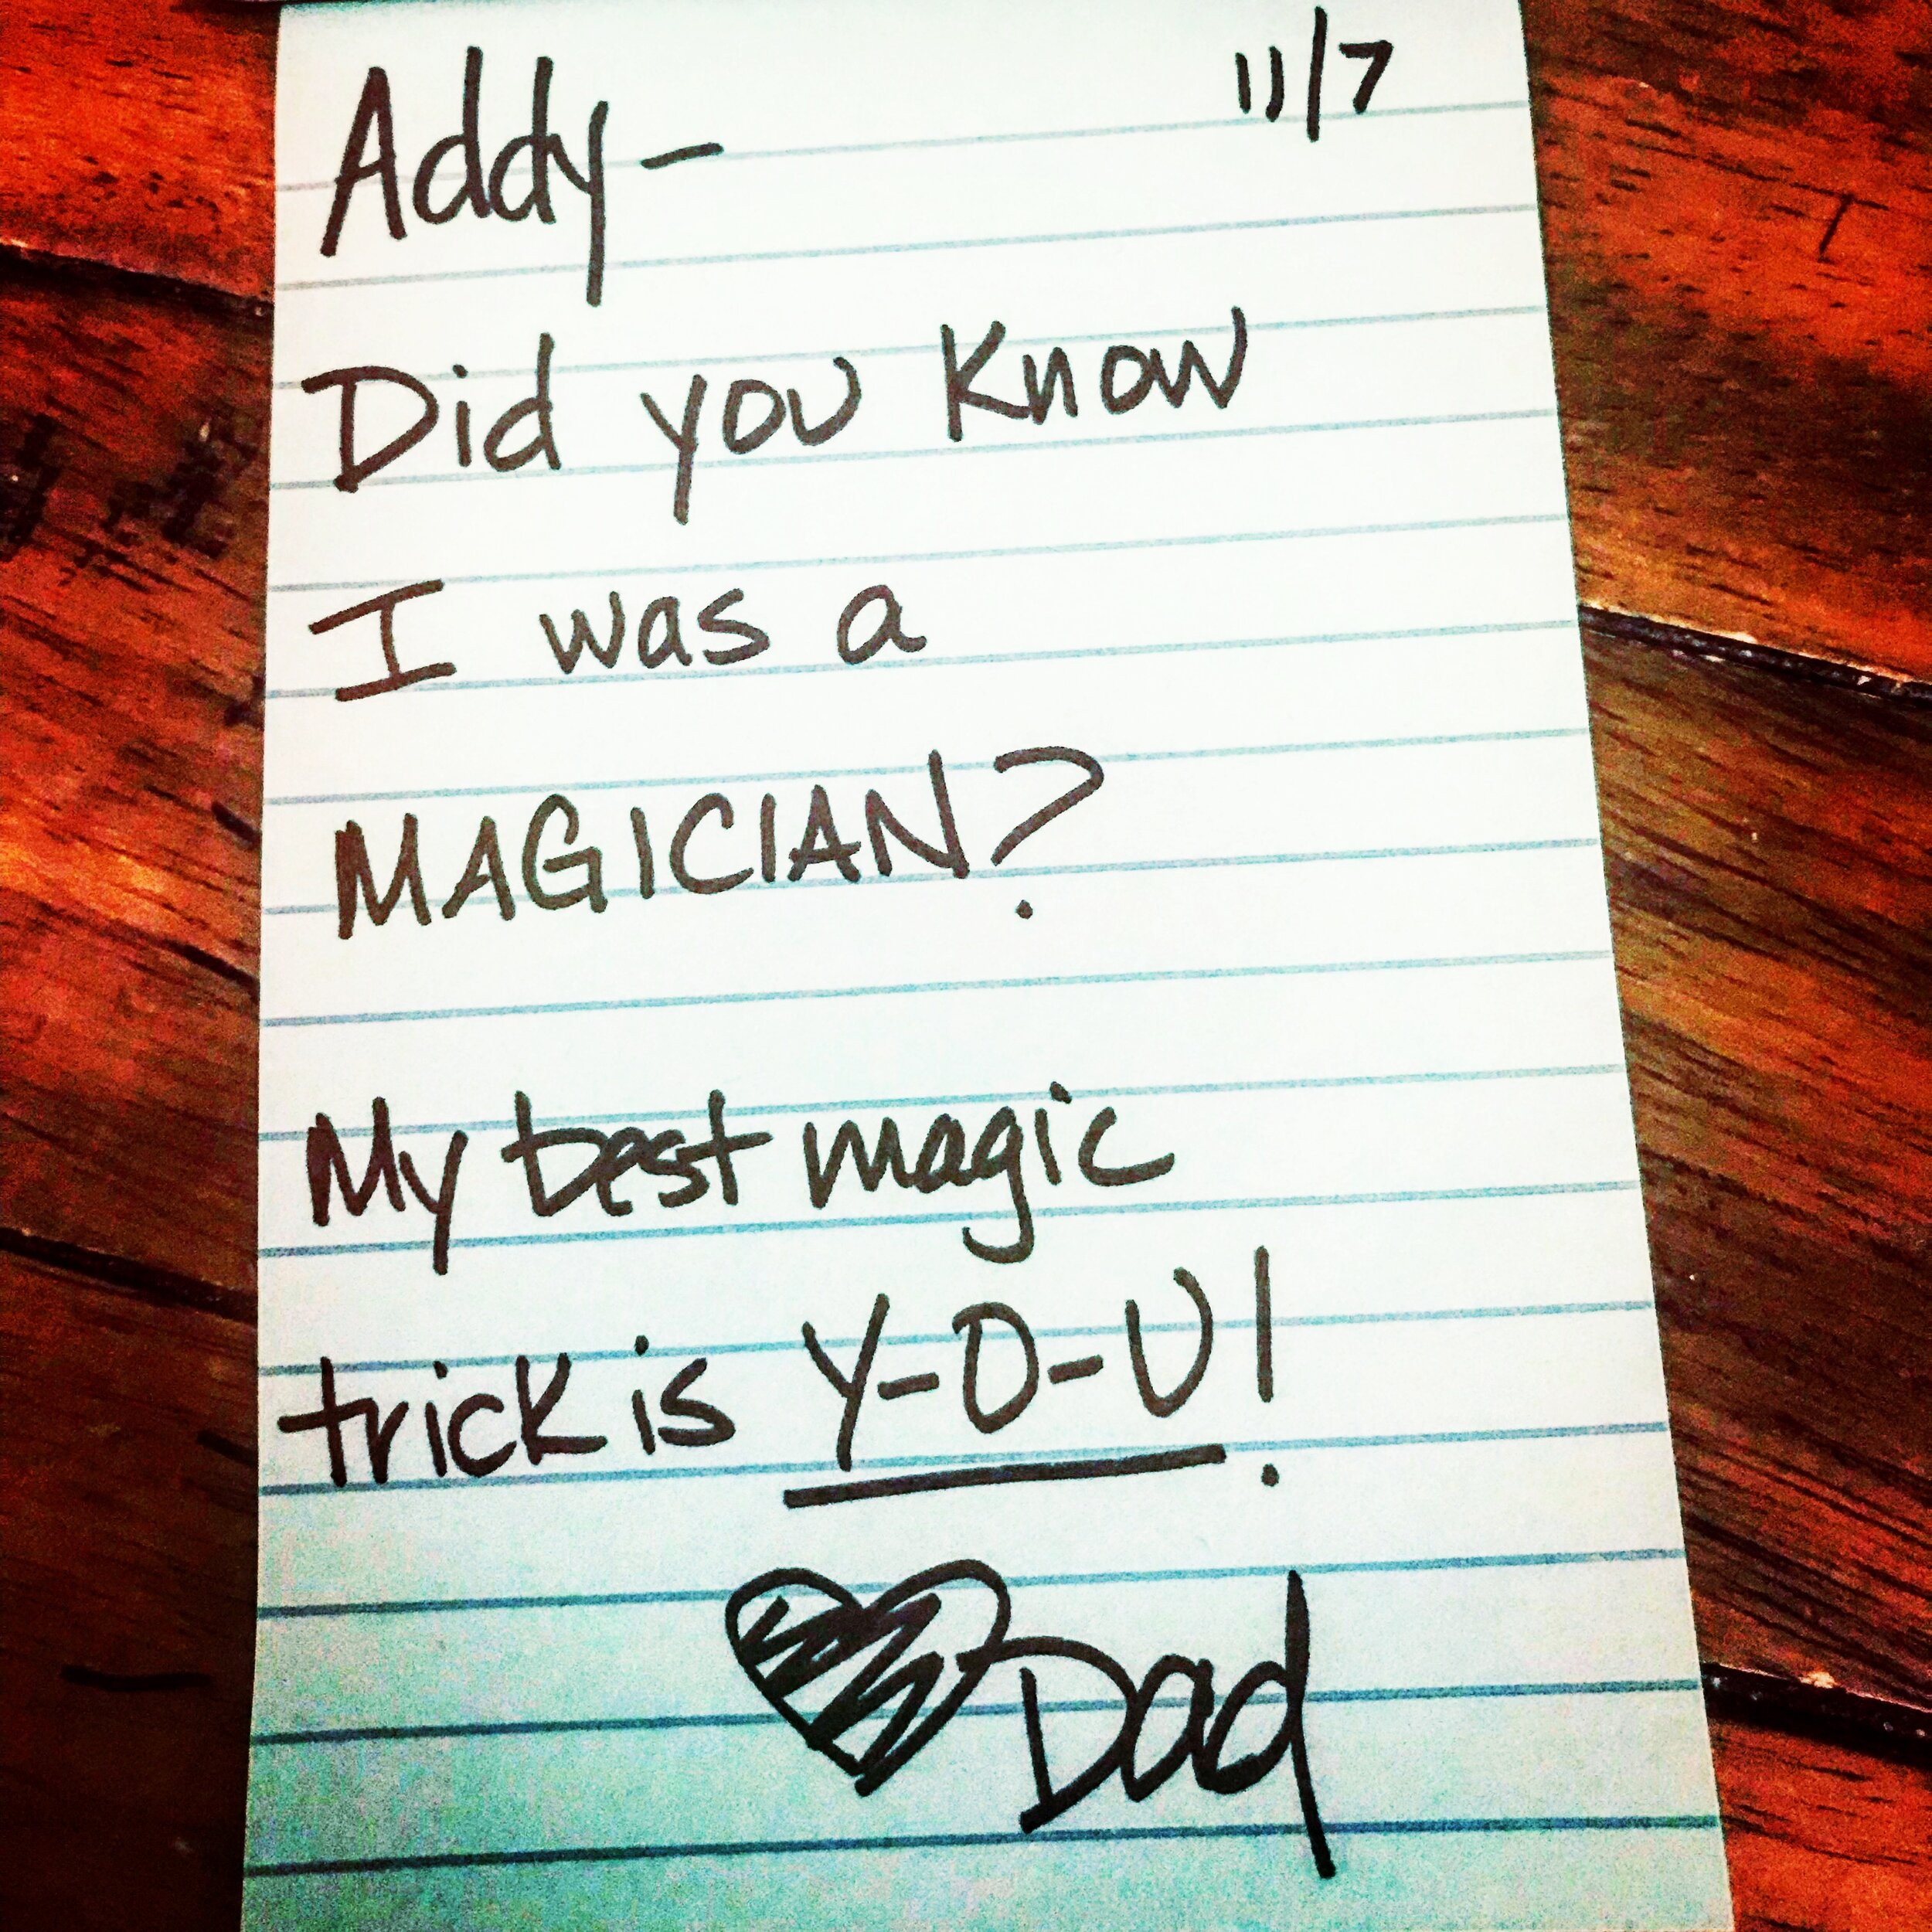 Addy- 11/7
Did you know
I was a
MAGICIAN?
My best magic
trick is Y-O-U!
♥Dad